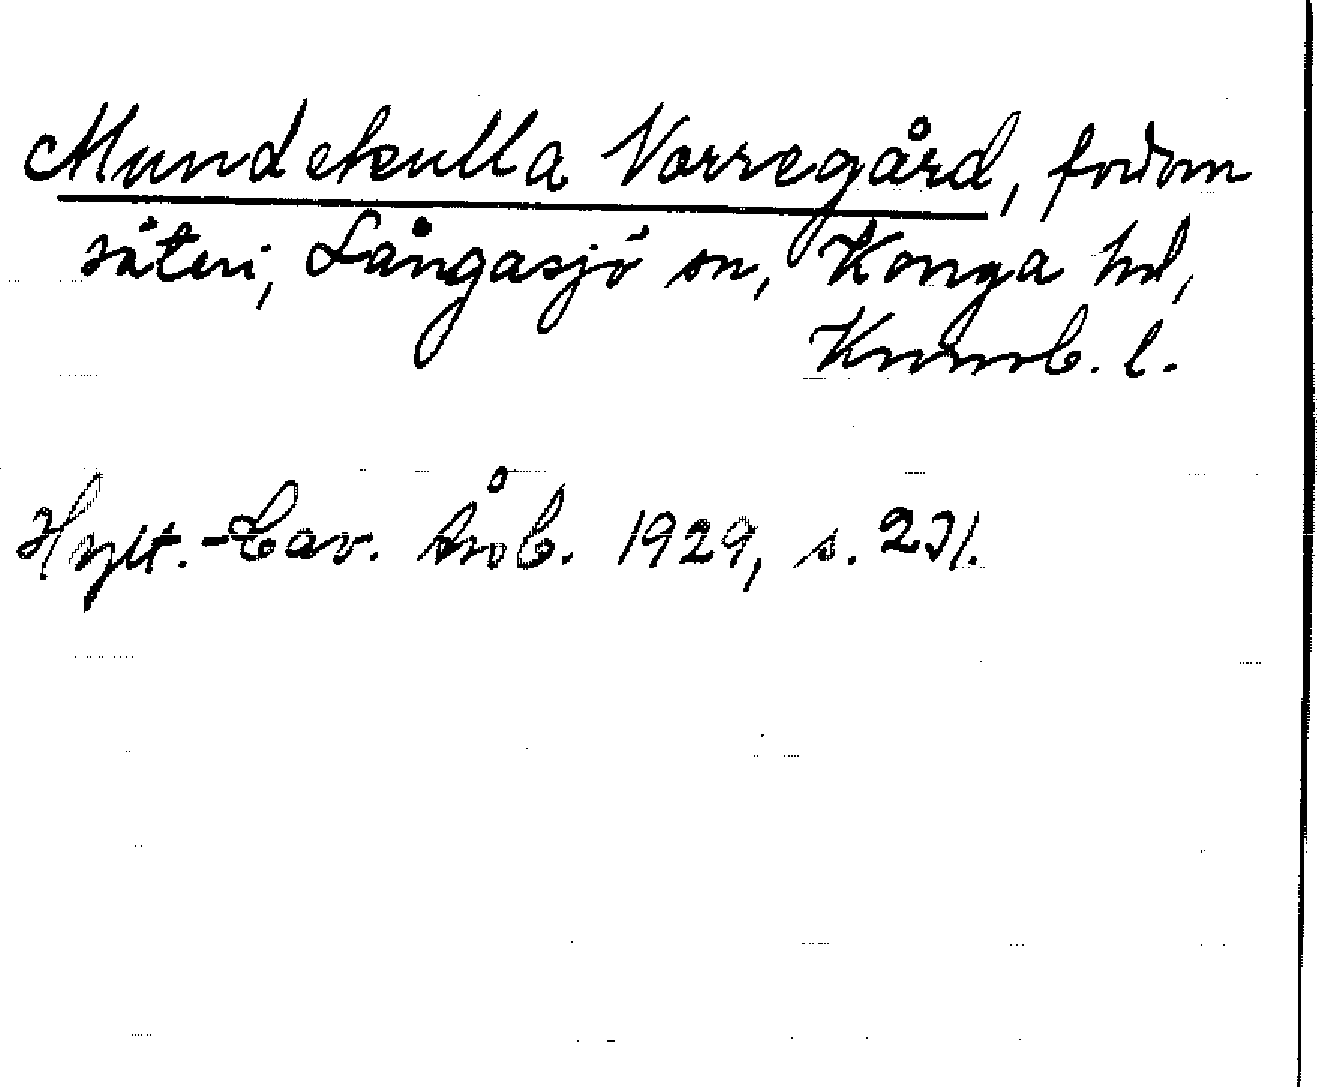 Mundekulla Norregård, fordom
säteri, Långasjö sn, Konga hd,
Kronob. l.
Hylt.-Cav. Årsb. 1929, s. 231.